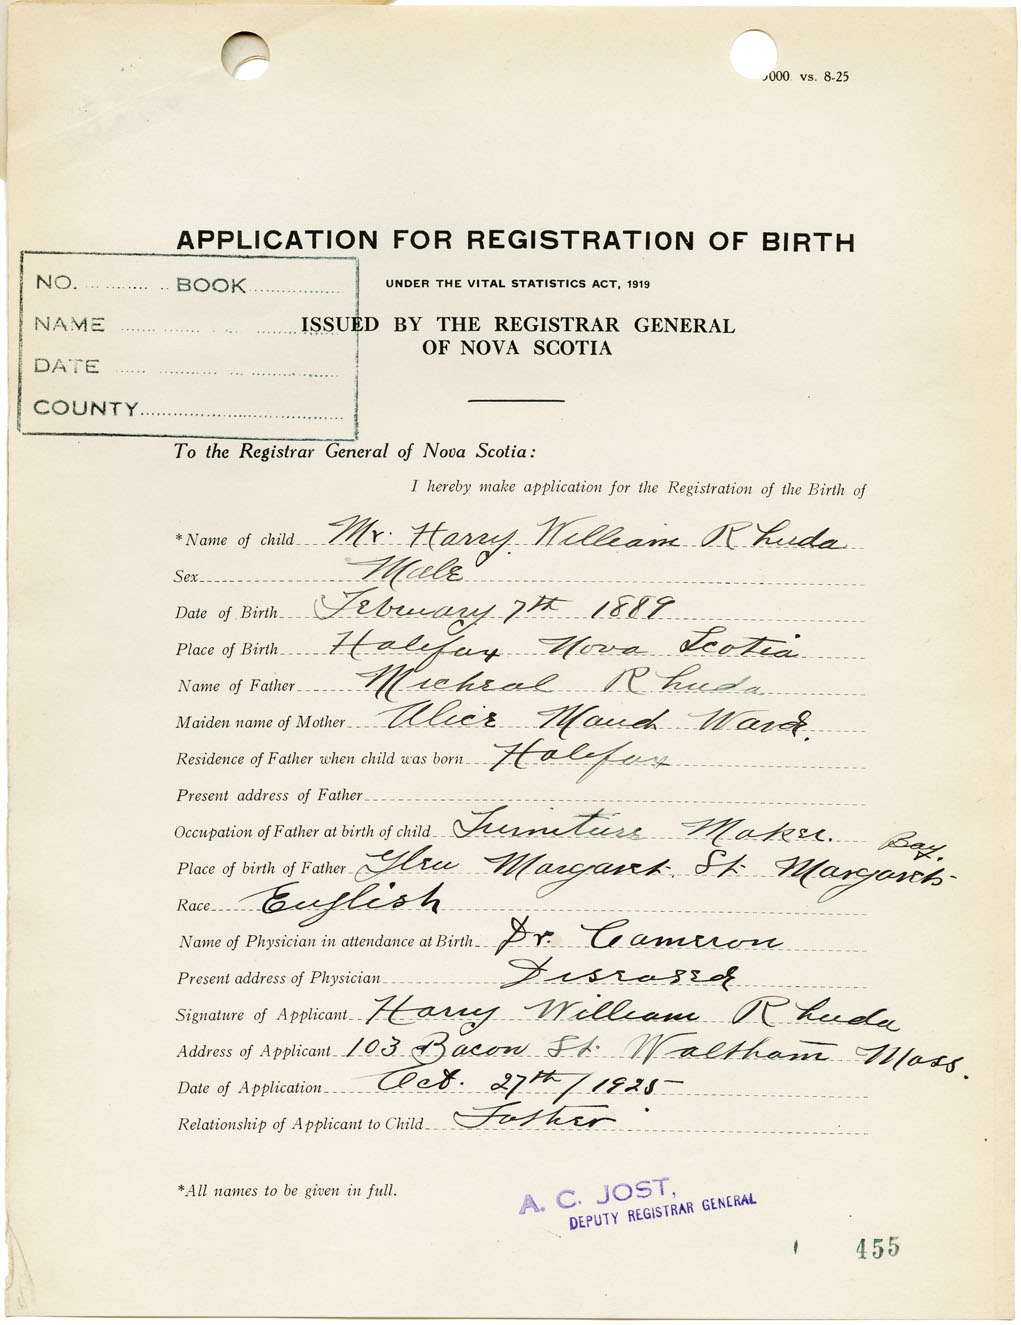 000 vs. 8-25
APPLICATION FOR REGISTRATION OF BIRTH
UNDER THE VITAL STATISTICS ACT, 1919
ISSUED BY THE REGISTRAR GENERAL
OF NOVA SCOTIA
NO. BOOK
NAME
DATE
COUNTY
To the Registrar General of Nova Scotia:
I hereby make application for the Registration of the Birth of
*Name of child Mr. Harry William Rhuda
Sex Male
Date of Birth February 7th 1889
Place of Birth Halifax Nova Scotia
Name of Father Micheal Rhuda
Maiden name of Mother Alice Maud Ward.
Residence of Father when child was born Halifax
Present address of Father
Occupation of Father at birth of child Furniture Maker.
Place of birth of Father Glen Margaret. St. Margarets Bay.
Race English
Name of Physician in attendance at Birth Dr. Cameron
Present address of Physician Diseased
Signature of Applicant Harry William Rhuda
Address of Applicant 103 Bacon St. Waltham Mass.
Date of Application Oct. 27th/1925
Relationship of Applicant to Child Father
*All names to be given in full.
A. C. JOST,
DEPUTY REGISTRAR GENERAL
455